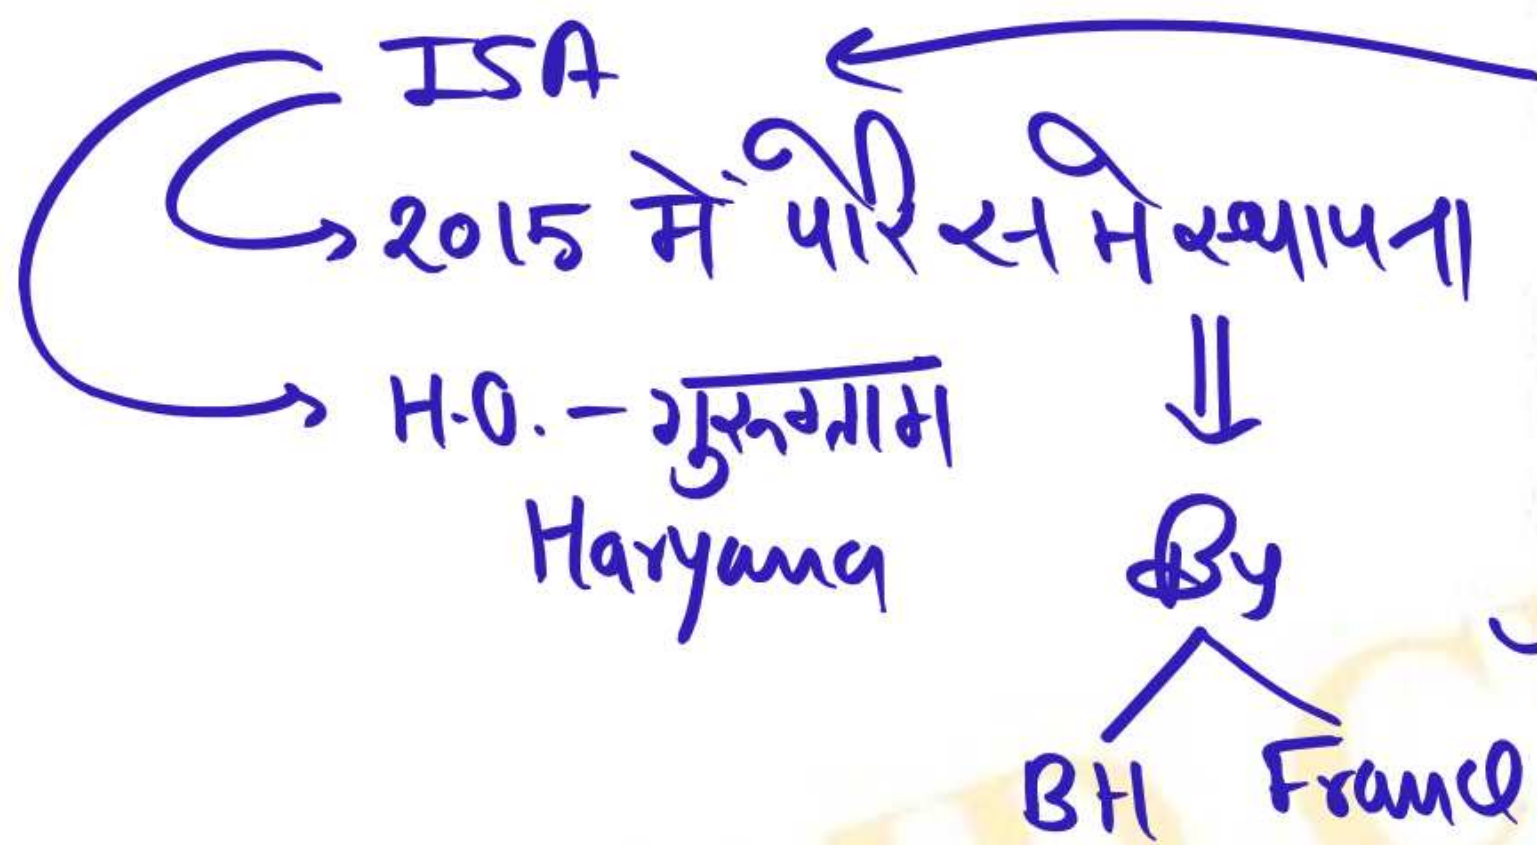 ISA
2015 में पेरिस मे स्थापना
H.O. - गुरूग्राम
Haryana
By
BH France